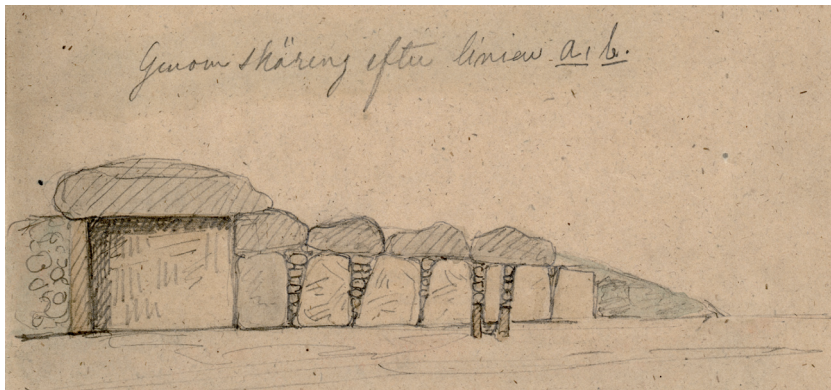 Genom skäring efter linien a, b.